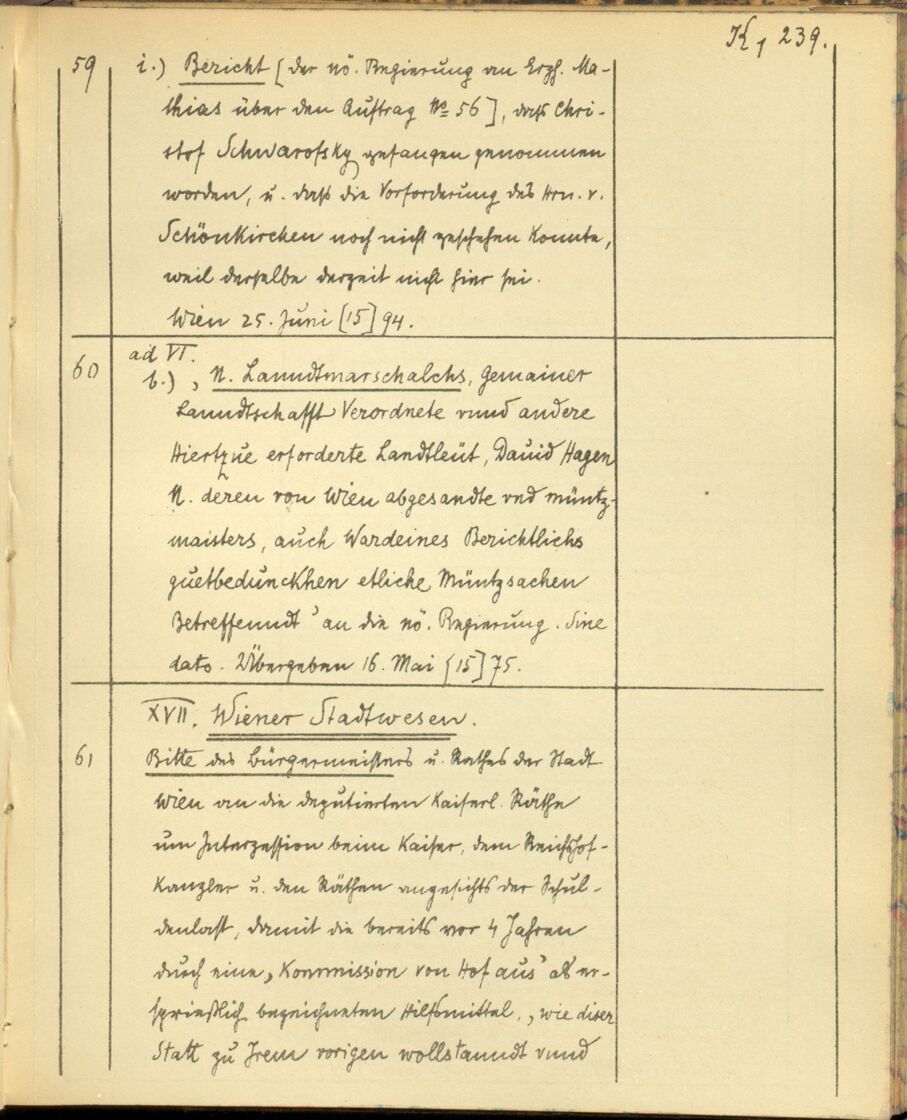 K, 239.
59 i.) Bericht [der nö. Regierung an Erzh. Ma-
thias über den Auftrag No 56], daß Chri-
stof Schwarofsky gefangen genommen
worden, u. daß die Vorforderung des Hrn. v.
Schönkirchen noch nicht geschehen konnte,
weil derselbe derzeit nicht hier sei.
Wien 25. Juni [15]94.
ad VI.
60 b.) „N. Lanndtmarschalchs, Gemainer
Lanndtschafft Verordnete vnnd andere
Hiertzue erforderte Landtleüt, Dauid Hagen
N. deren von Wien abgesandte vnd müntz-
maisters, auch Wardeines Berichtlichs
guetbedunckhen etliche Müntzsachen
Betreffenndt" an die nö. Regierung. Sine
dato. Übergeben 16. Mai [15]75.
XVII. Wiener Stadtwesen.
61 Bitte des Bürgermeisters u. Rathes der Stadt
Wien an die deputierten Kaiserl. Räthe
um Interzession beim Kaiser, dem Reichshof-
Kanzler u. den Räthen angesichts der Schul-
denlast, damit die bereits vor 4 Jahren
durch eine „Kommission von Hof aus" als er-
sprießlich bezeichneten Hilfsmittel, „wie diser
Statt zu Irem vorigen wollstanndt vnnd